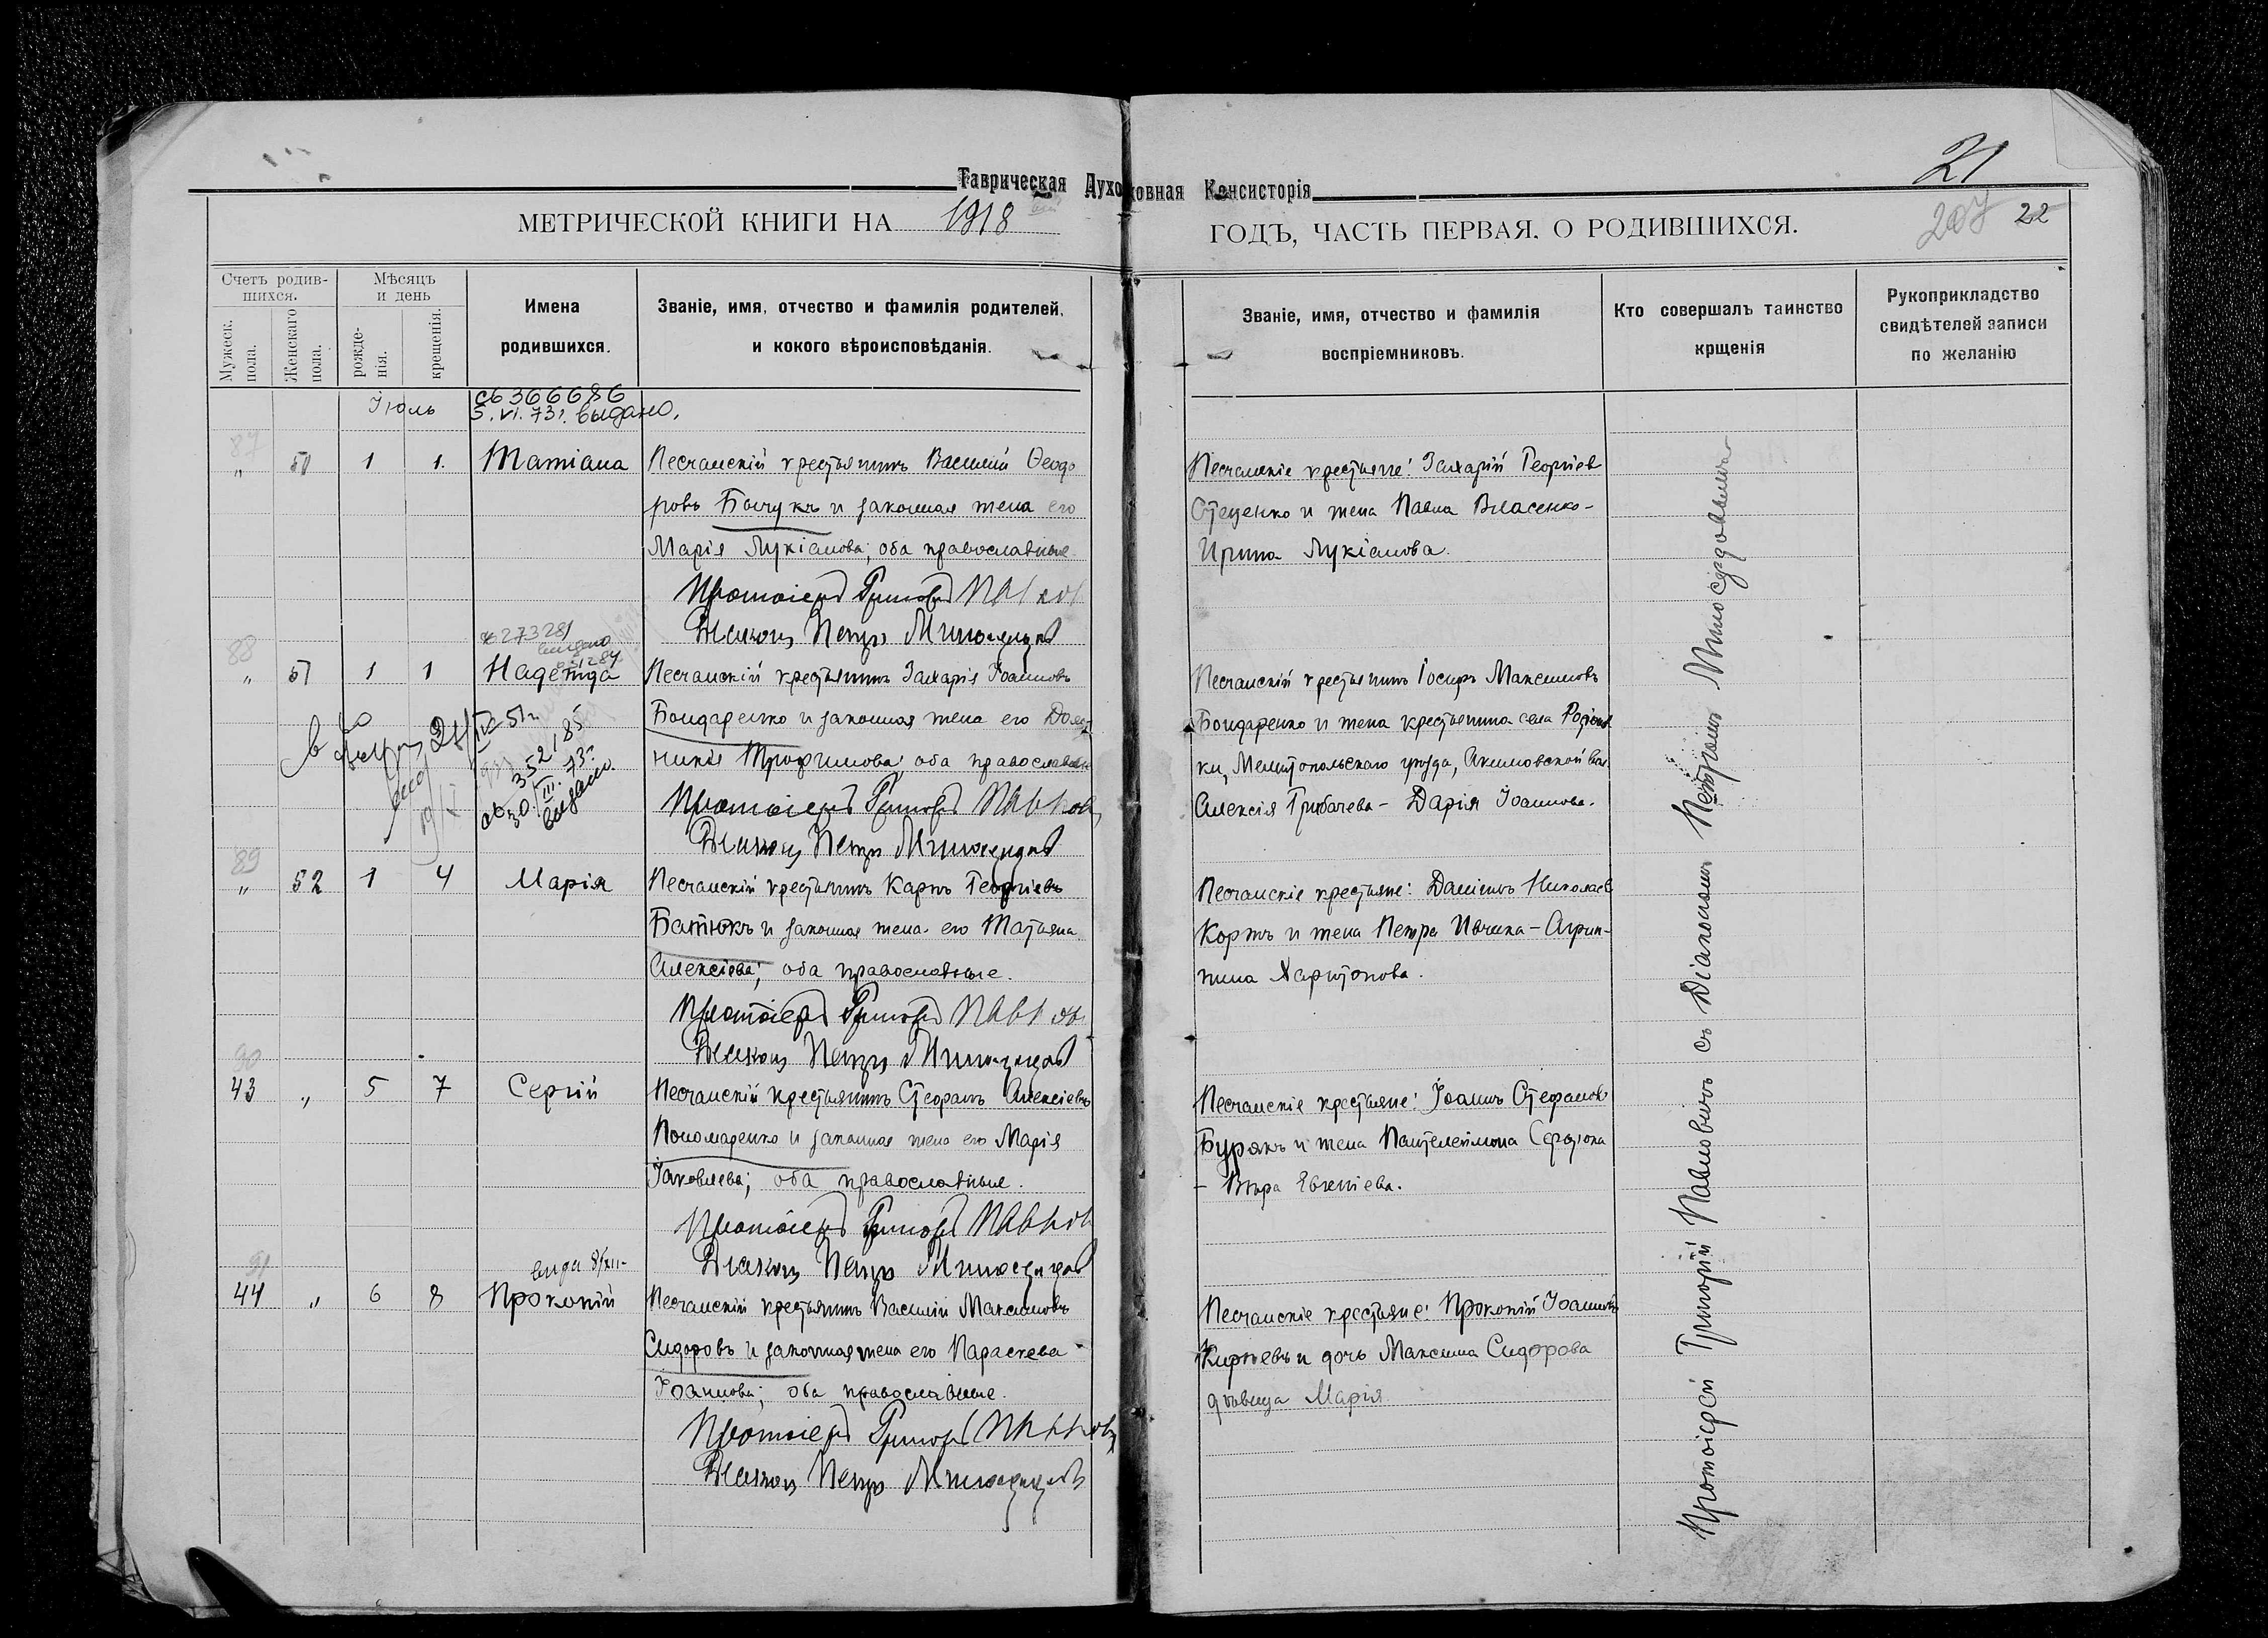 Таврическая Духовная Консисторія
21
МЕТРИЧЕСКОЙ КНИГИ НА 1918
ГОДЪ, ЧАСТЬ ПЕРВАЯ. О РОДИВШИХСЯ.
207 22
Счетъ родив-
шихся.
Мужеск.
пола.
Женскаго
пола.
Мѣсяцъ
и день
рожде-
нія.
крещенія.
Имена
родившихся.
Званіе, имя, отчество и фамилія родителей,
и кокого вѣроисповѣданія.
Званіе, имя, отчество и фамилія
воспріемниковъ.
Кто совершалъ таинство
крщенія
Рукоприкладство
свидѣтелей записи
по желанію
Іюль
366686
5.VI.73г. выдано.
87
„ 50 1 1. Татіана Песчанскій крестьянинъ Василій Ѳеодо
ровъ и законная жена его
Марія Лукіанова; оба православные
Протоіерей Григорій Павлов
Діаконъ Петръ Милосердов
Песчанскіе крестьяне: Захарій Георгіев
Стеценко и жена Павла Власенко-
Ирина Лукіанова.
88
273281
„ 51 1 1 Надежда Песчанскій крестьянинъ Захарія Іоанновъ
Бондаренко и законная жена его
Трофимова; оба православн
352185
30/III.73г.
выдано.
Протоіерей Григорій Павлов
Діаконъ Петръ Милосердов
Песчанскій крестьянинъ Іосифъ Максимовъ
Бондаренко и жена крестьянина села
ки, Мелитопольскаго уѣзда, Акимовской вол
Алексія Грибачева - Дарія Іоаннова.
89
„ 52 1 4 Марія Песчанскій крестьянинъ Карпъ Георгіевъ
Батюкъ и законная жена его Татьяна
Алексіева; оба православные.
Протоіерей Григорій Павлов
Діаконъ Петръ Милосердов
Песчанскіе крестьяне: Даніилъ Николаев
Коржъ и жена Петра Ивчика - Агрип-
пина Харитонова.
90
43 „ 5 7 Сергій Песчанскій крестьянинъ Стефанъ Алексіевъ
Пономаренко и законная жена его Марія
Іаковлева; оба православные.
Протоіерей Григорій Павлов
Діаконъ Петръ Милосердов
Песчанскіе крестьяне: Іоаннъ Стефанов
Бурякъ и жена Пантелеймона Сердюка
- Вѣра Евгеніева.
91
8/XII-
44 „ 6 8 Прокопій Песчанскій крестьянинъ Василій Максимовъ
Сидоровъ и законная жена его Параскева
Іоаннова; оба православные.
Протоіерей Григорій Павлов
Діаконъ Петръ Милосердов
Песчанскіе крестьяне: Прокопій Іоанновъ
и дочь Максима Сидорова
дѣвица Марія
Протоіерей Григорій Павловичъ съ Діакономъ Петромъ Милосердовымъ